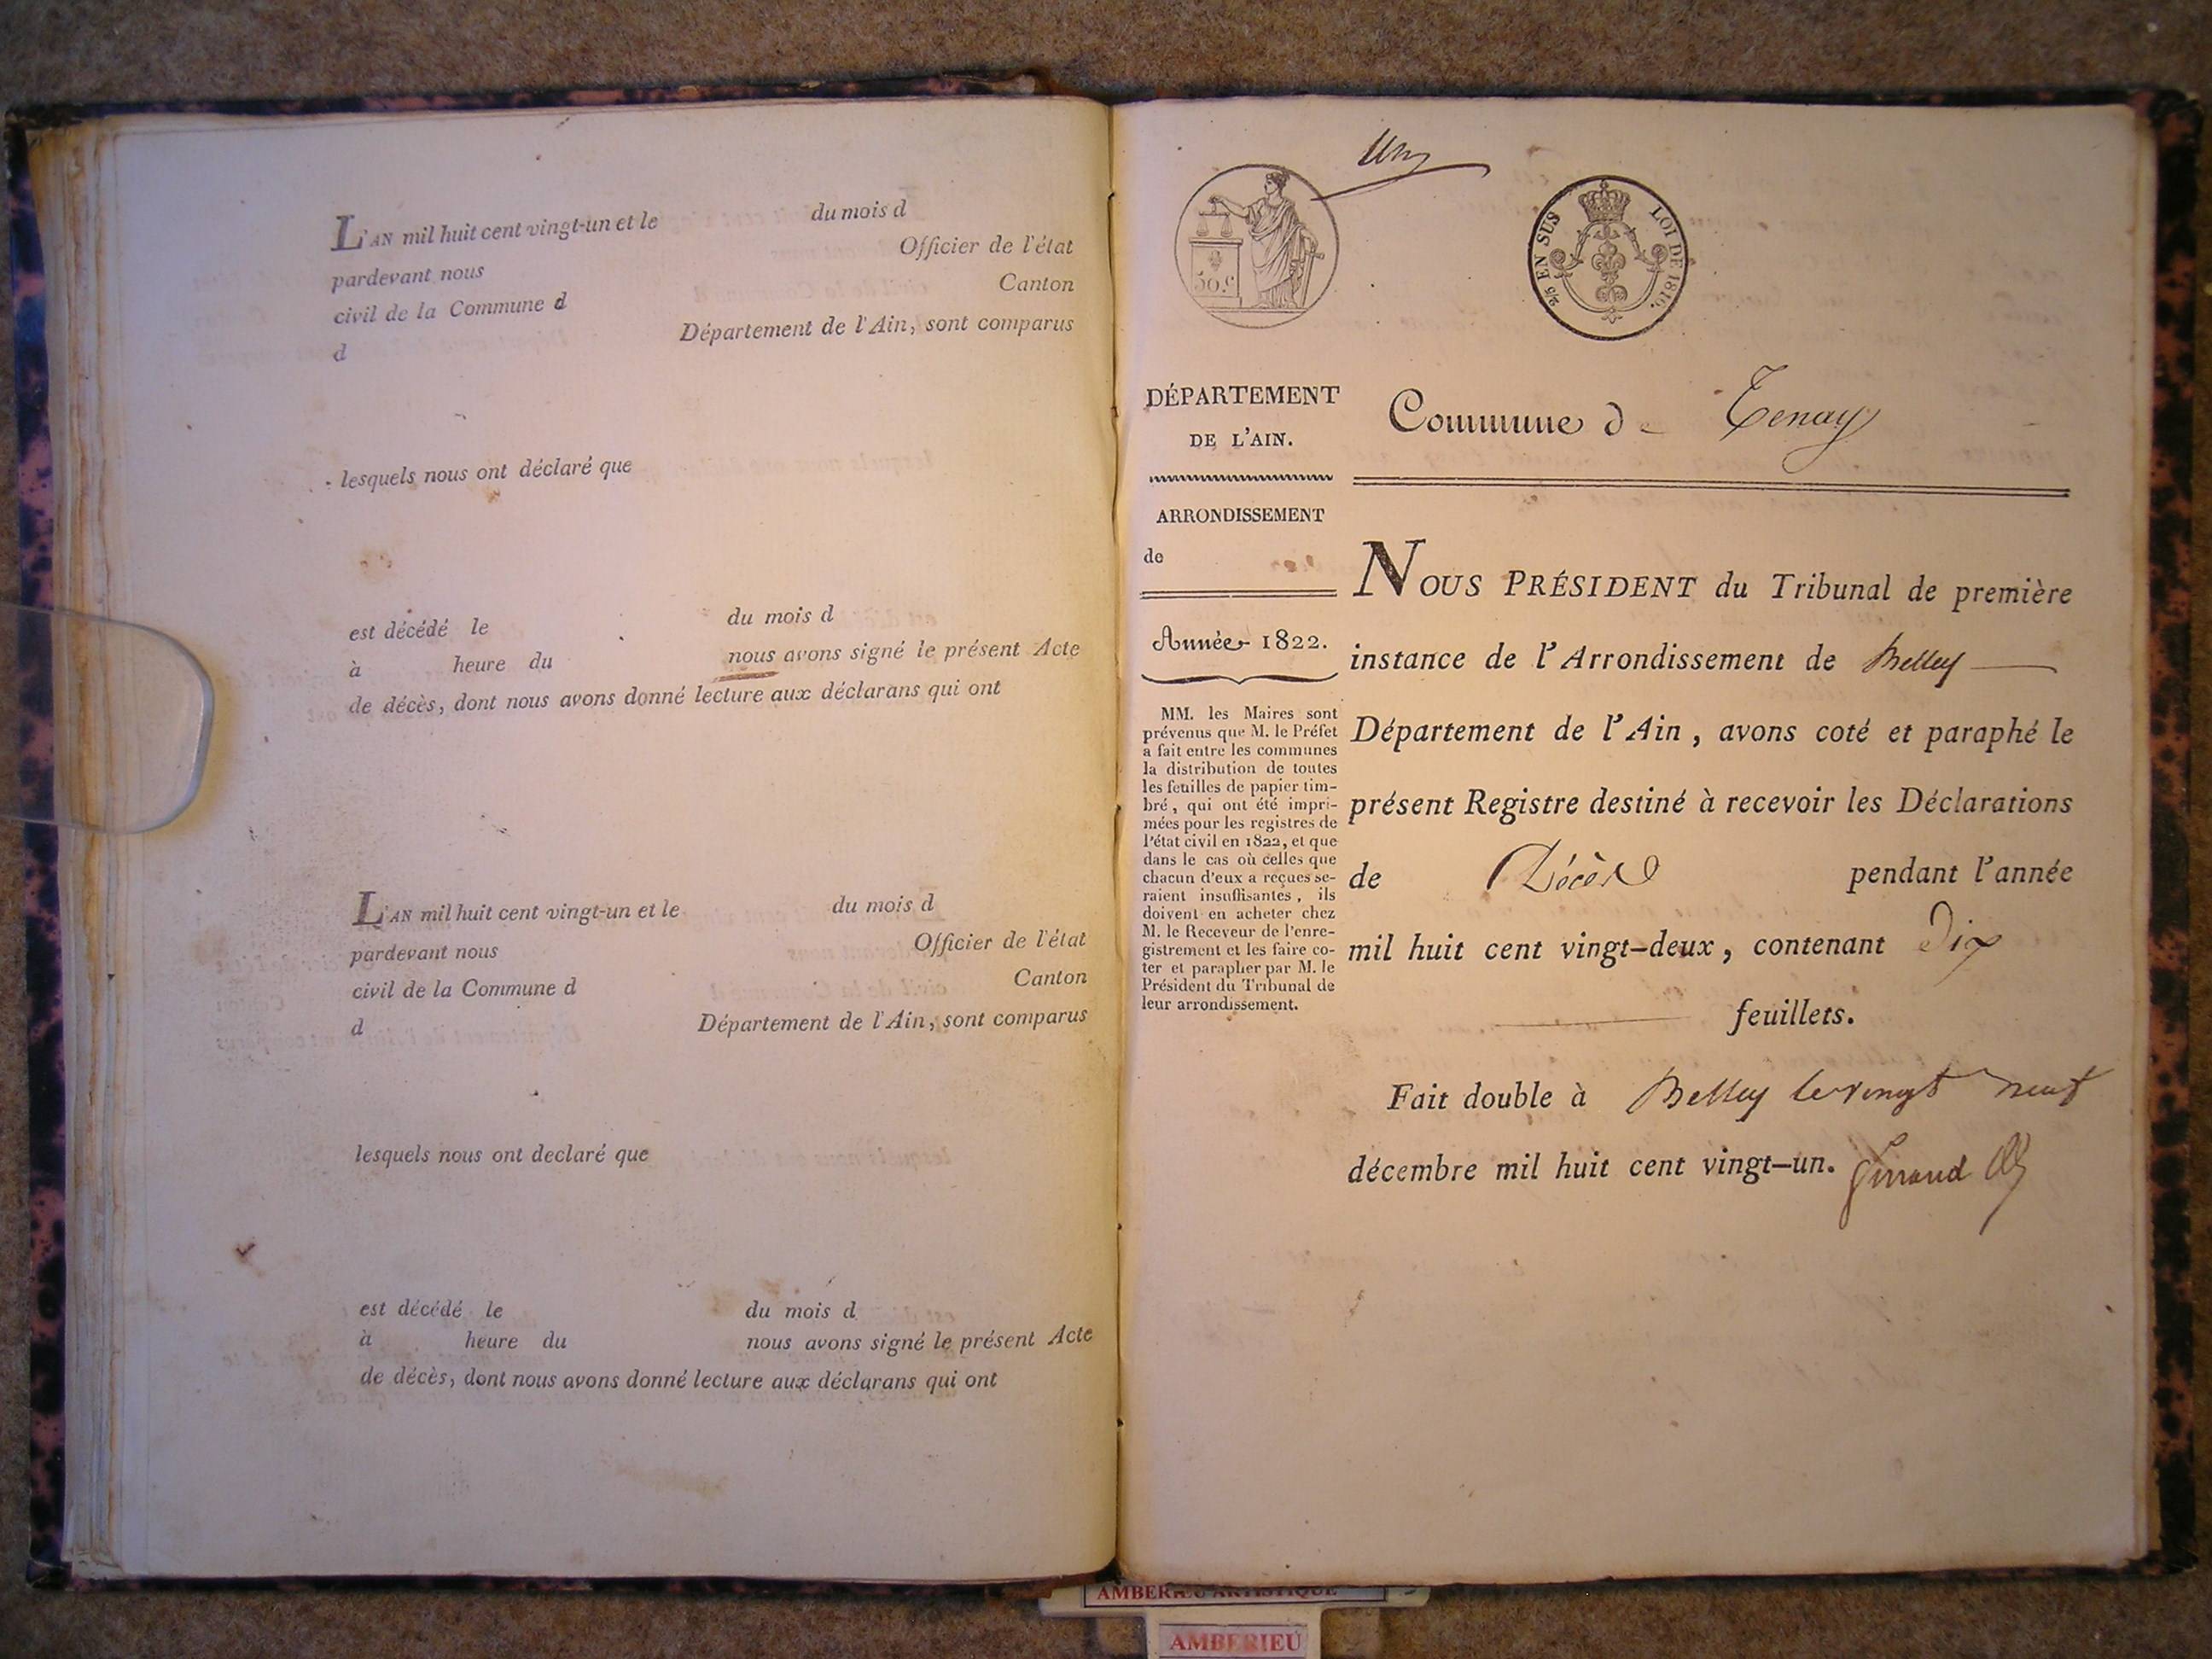 L'AN mil huit cent vingt-un et le du mois d
pardevant nous Officier de l'état
civil de la Commune d Canton
d Département de l'Ain, sont comparus
lesquels nous ont déclaré que
est décédé le du mois d
à heure du nous avons signé le présent Acte
de décès, dont nous avons donné lecture aux déclarans qui ont
L'AN mil huit cent vingt-un et le du mois d
pardevant nous Officier de l'état
civil de la Commune d Canton
d Département de l'Ain, sont comparus
lesquels nous ont declaré que
est décédé le du mois d
à heure du nous avons signé le présent Acte
de décès, dont nous avons donné lecture aux déclarans qui ont
Un
50.c
2/5 EN SUS LOI DE 1816.
DÉPARTEMENT
DE L'AIN.
ARRONDISSEMENT
de
Année 1822.
MM. les Maires sont
prévenus que M. le Préfet
a fait entre les communes
la distribution de toutes
les feuilles de papier tim-
bré, qui ont été impri-
mées pour les registres de
l'état civil en 1822, et que
dans le cas où celles que
chacun d'eux a reçues se-
raient insuffisantes, ils
doivent en acheter chez
M. le Receveur de l'enre-
gistrement et les faire co-
ter et parapher par M. le
Président du Tribunal de
leur arrondissement.
Commune de Tenay
NOUS PRÉSIDENT du Tribunal de première
instance de l'Arrondissement de Belley
Département de l'Ain, avons coté et paraphé le
présent Registre destiné à recevoir les Déclarations
de Décès pendant l'année
mil huit cent vingt-deux, contenant Dix
feuillets.
Fait double à Belley le vingt neuf
décembre mil huit cent vingt-un.
AMBERIEU ARTISTIQUE
AMBERIEU